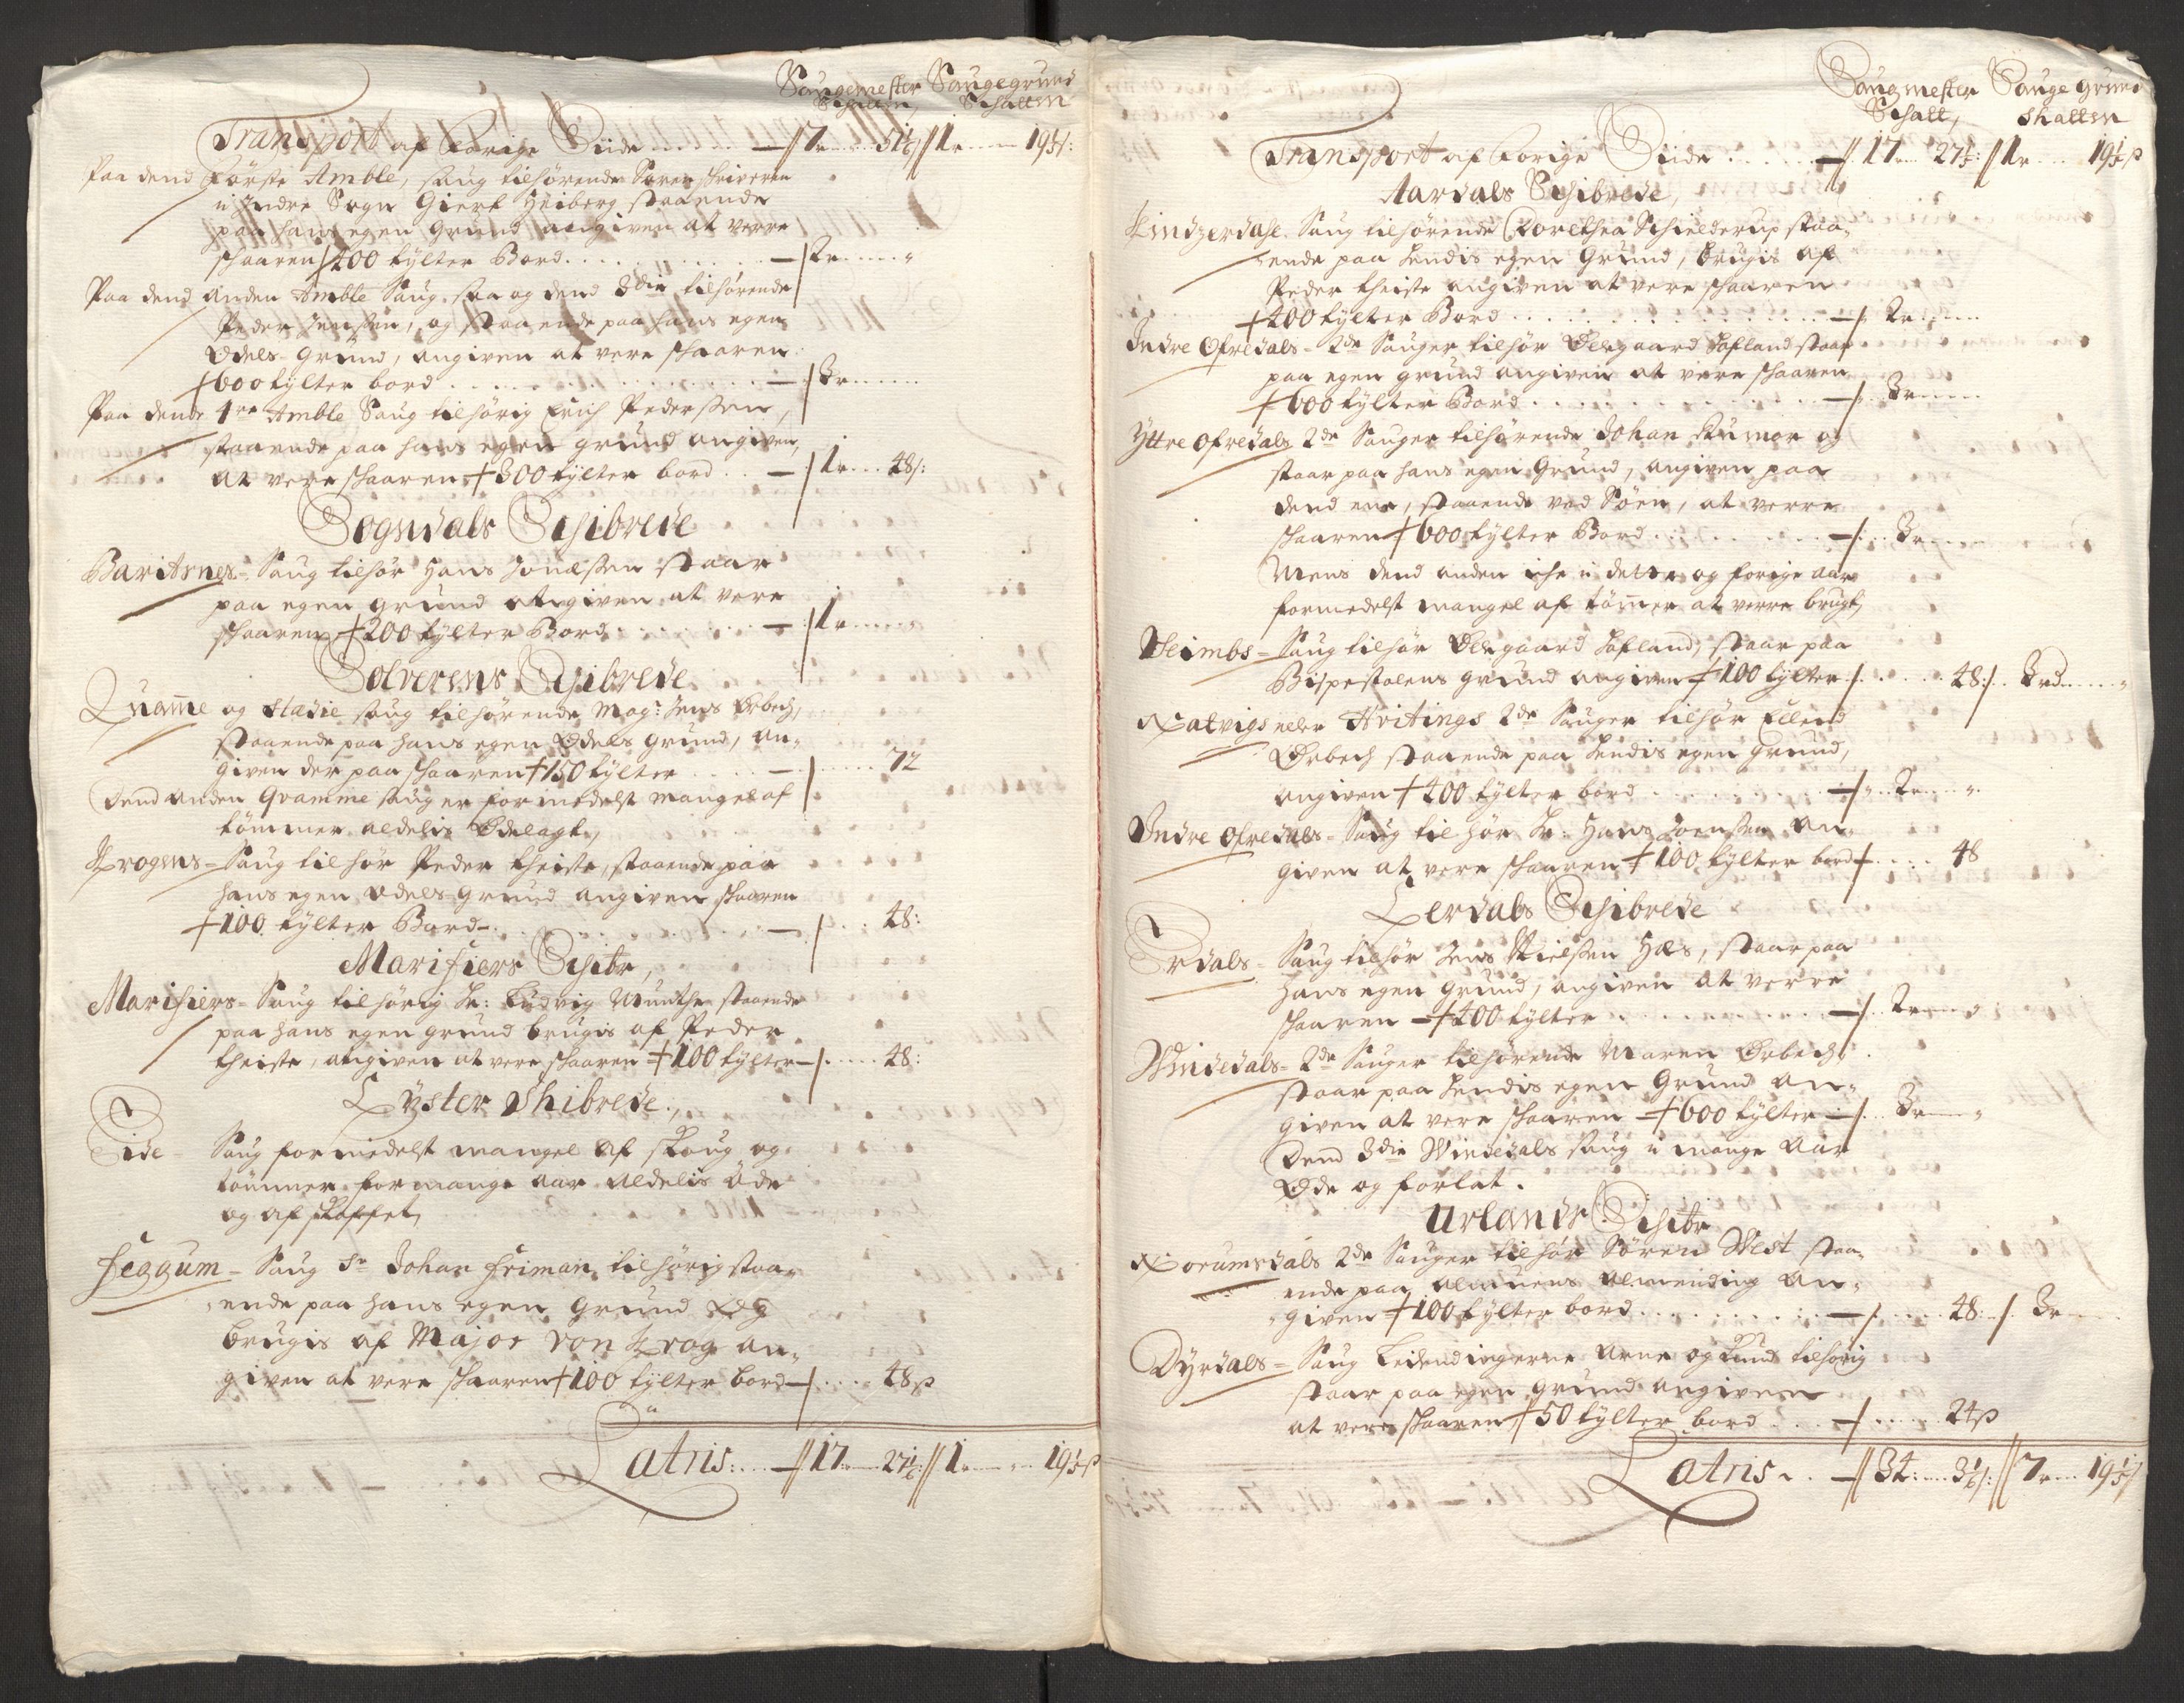 Saugemester Saugegrund
Schatten, Schatten
Transport af Forige Siide ..... — // 7r ..... 51½ // 1r — 19½ s:
Paa dend Første Amble, saug tilhørende Soren schriveren
i Indre Sogn Giert Heiberg staaende
paa hans egen Grund angiven at verre
schaaren 400 tylter Bord .......... — 2r ......
Paa dend anden Amble Saug, saa og dend 3die tilhørende
Peder Jenssen, og staaende paa hans egen
Odels-Grund, angiven at vere schaaren
600 tylter bord .......... — 3r ......
Paa dend 4re Amble Saug tilhørig Erich Pederssen,
staaende paa hans egen grund angiven,
at vere schaaren 300 tylter bord ... — 1r .... 48 s:
Sogndals Schibrede
Baritsnes- Saug tilhør Hans Jonæssen staar
paa egen grund angiven at vere
schaaren 200 tylter Bord ........ — 1r ......
Solverens Schibrede
Quamme og Stadie saug tilhørende Mag: Jens Ørbech,
staaende paa hans egen Odels grund, an-
given der paa schaaren 150 tylter ..... — ...... 72
Dend anden Qvamme saug er formedelst mangel af
tømmer aldelis Ødelagt,
Krogens- Saug tilhør Peder theiste, staaende paa
hans egen odels grund angiven schaaren
100 tylter Bord- ........ — .... 48:
Marifiers Schibr,
Marifiers- Saug tilhørig Hr: Ludvig Munthe staaende
paa hans egen grund brugis af Peder
theiste, angiven at vere schaaren 100 tylter — ..... 48:
Lyster Schibrede.,
Eide- Saug formedelst mangel af skoug og
tømmer for mange aar aldelis øde
og afskaffet,
Feggum- Saug Sr Johan Friman tilhørig staa-
ende paa hans egen Grund Og
brugis af Major von Krog an-
given at vere schaaren 100 tylter bord — .... 48 s
Latris: .... — // 17. — 27½: // 1. — 19½ s
Saugmester Sauge Grund
Schatt, Shatten
Transport af forige Siide ...... — 17r ... 27½: // 1r .... 19½ s
Aardals Schibrede,
Lindzerdahl. Saug tilhørende Dorethea Schielderup staa-
ende paa hendis egen Grund, brugis af
Peder theiste angiven at vere schaaren
400 tylter Bord .......... — 2r ......
Indre Ofredals- 2de Sauger tilhør Ølegaard Lofland staar
paa egen grund angiven at vere schaaren
600 tylter Bord .......... — 3r ......
Yttre Ofredals 2de Sauger tilhørende Johan Rumor og
staar paa hans egen Grund, angiven paa
dend ene, staaende ved Søen, at verre
schaaren 600 tylter Bord ........ — ... 3r ....
Mens dend anden iche i dette og forige aar
formedelst mangel af tømmer at verre brugt,
Steimbs- Saug tilhør Ølegaard Lofland, staar paa
Bispestolens grund angiven 100 tylter ...... 48: ... 3rd ......
Natvigs eller Hvitings 2de Sauger tilhør Ellend
Ørbech staaende paa hendis egen grund,
angiven 400 tylter bord ........ — ... 2r ....
Indre Ofredals- Saug tilhør Hr: Hans Joenssen an-
given at vere schaaren 100 tylter bord .... 48
Lerdals Schibrede
Erdals- Saug tilhør Jens Nielssen Hæs, staar paa
hans egen grund, angiven at verre
schaaren — 400 tylter ........ — .. 2r ....
Windedals- 2de Sauger tilhørende Maren Ørbech,
staar paa hendis egen Grund an-
given at vere schaaren — 600 tylter — .. 3r ....
Dend 3die Windedals saug i mange Aar
Øde og forlat.
Urlands Schibr
Korumsdals 2de Sauger tilhør Søren West staa-
ende paa almuens almending an-
given 100 tylter bord ........ — ..... 48: /. 3r ....
Dyrdals- Saug Leidendingerne Arne og Knud tilhørig
staar paa egen grund angiven
at vere schaaren 50 tylter bord .... — ..... 24 s
Latris .. — // 34: ... 3½: // 7r ... 19½ s